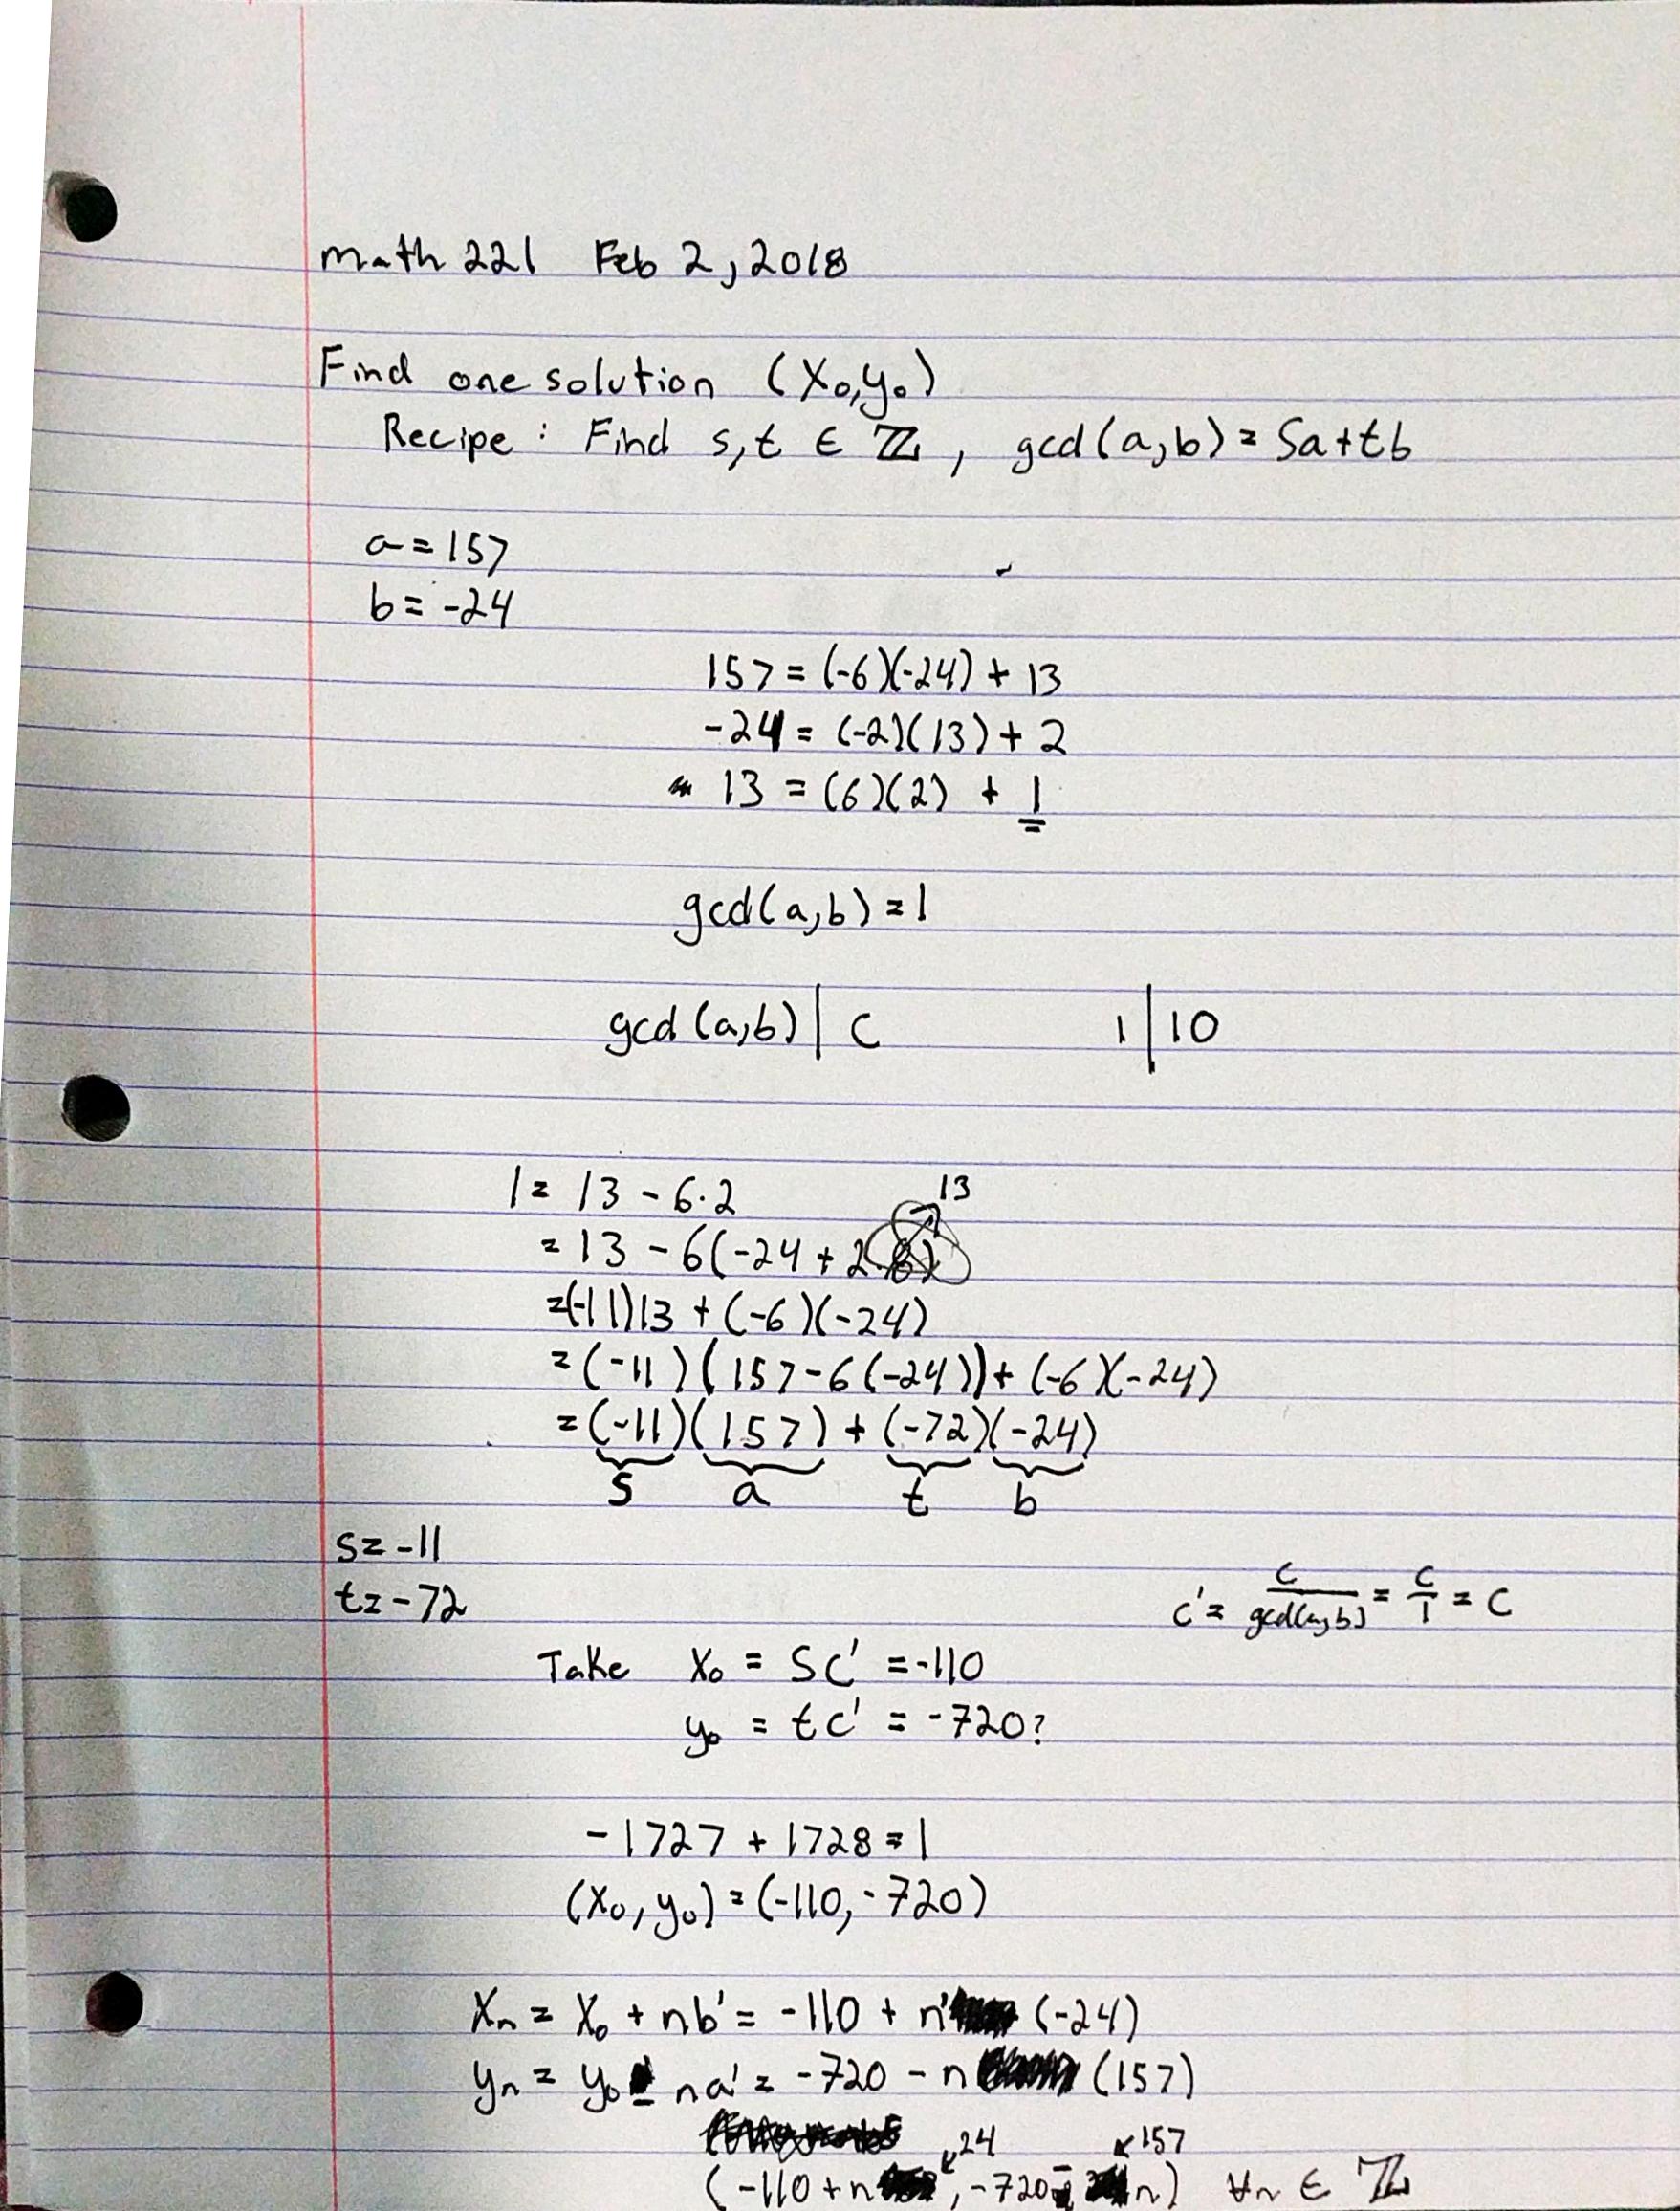 math 221 Feb 2, 2018
Find one solution (x₀,y₀)
Recipe : Find s,t ∈ ℤ, gcd(a,b) = sa+tb
a = 157
b = -24
157 = (-6)(-24) + 13
-24 = (-2)(13) + 2
13 = (6)(2) + 1
gcd(a,b) = 1
gcd(a,b) | c 1 | 10
1 = 13 - 6·2
13
= 13 - 6(-24 + 2·
=(-11)13 + (-6)(-24)
= (-11)(157-6(-24))+(-6)(-24)
= (-11)(157) + (-72)(-24)
s a t b
s = -11
t = -72
c' = c/gcd(a,b) = c/1 = c
Take x₀ = sc' = -110
y₀ = tc' = -720?
-1727 + 1728 = 1
(x₀, y₀) = (-110, -720)
xₙ = x₀ + nb' = -110 + n (-24)
yₙ = y₀ - na' = -720 - n (157)
24 157
(-110 + n , -720 - n) ∀n ∈ ℤ